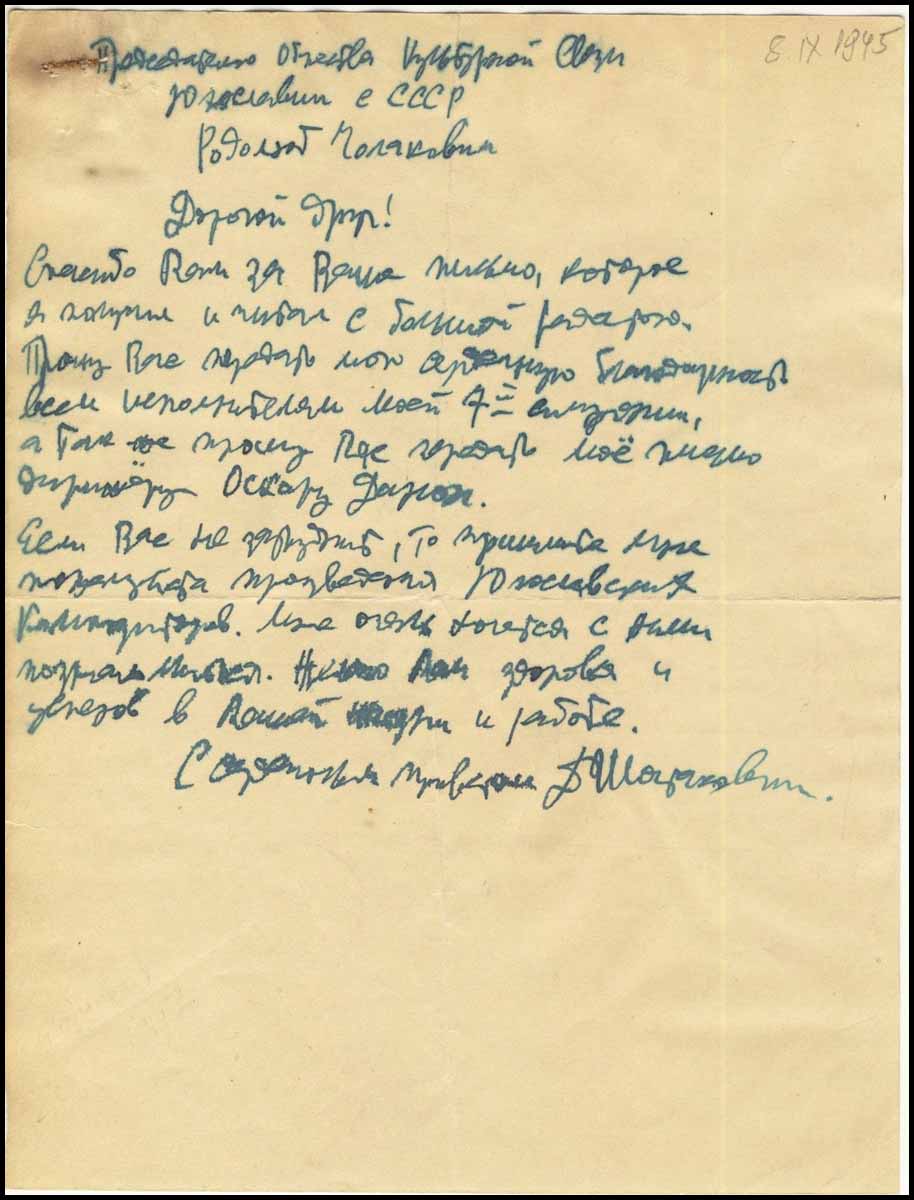 8. IX 1945
Председателю Общества Культурной Связи
Югославии с СССР
Родолюб Чолакович
Дорогой друг!
Спасибо Вам за Ваше письмо, которое
я получил и читал с большой радостью.
Прошу Вас передать мою сердечную благодарность
всем исполнителям моей 7-й симфонии,
а так же прошу Вас передать моё письмо
дирижёру Оскару Данон.
Если Вас не затруднит, то пришлите мне
пожалуйста произведения Югославских
Композиторов. Мне очень хочется с ними
познакомиться. Желаю Вам здоровья и
успехов в Вашей жизни и работе.
С сердечным приветом Д Шостакович.